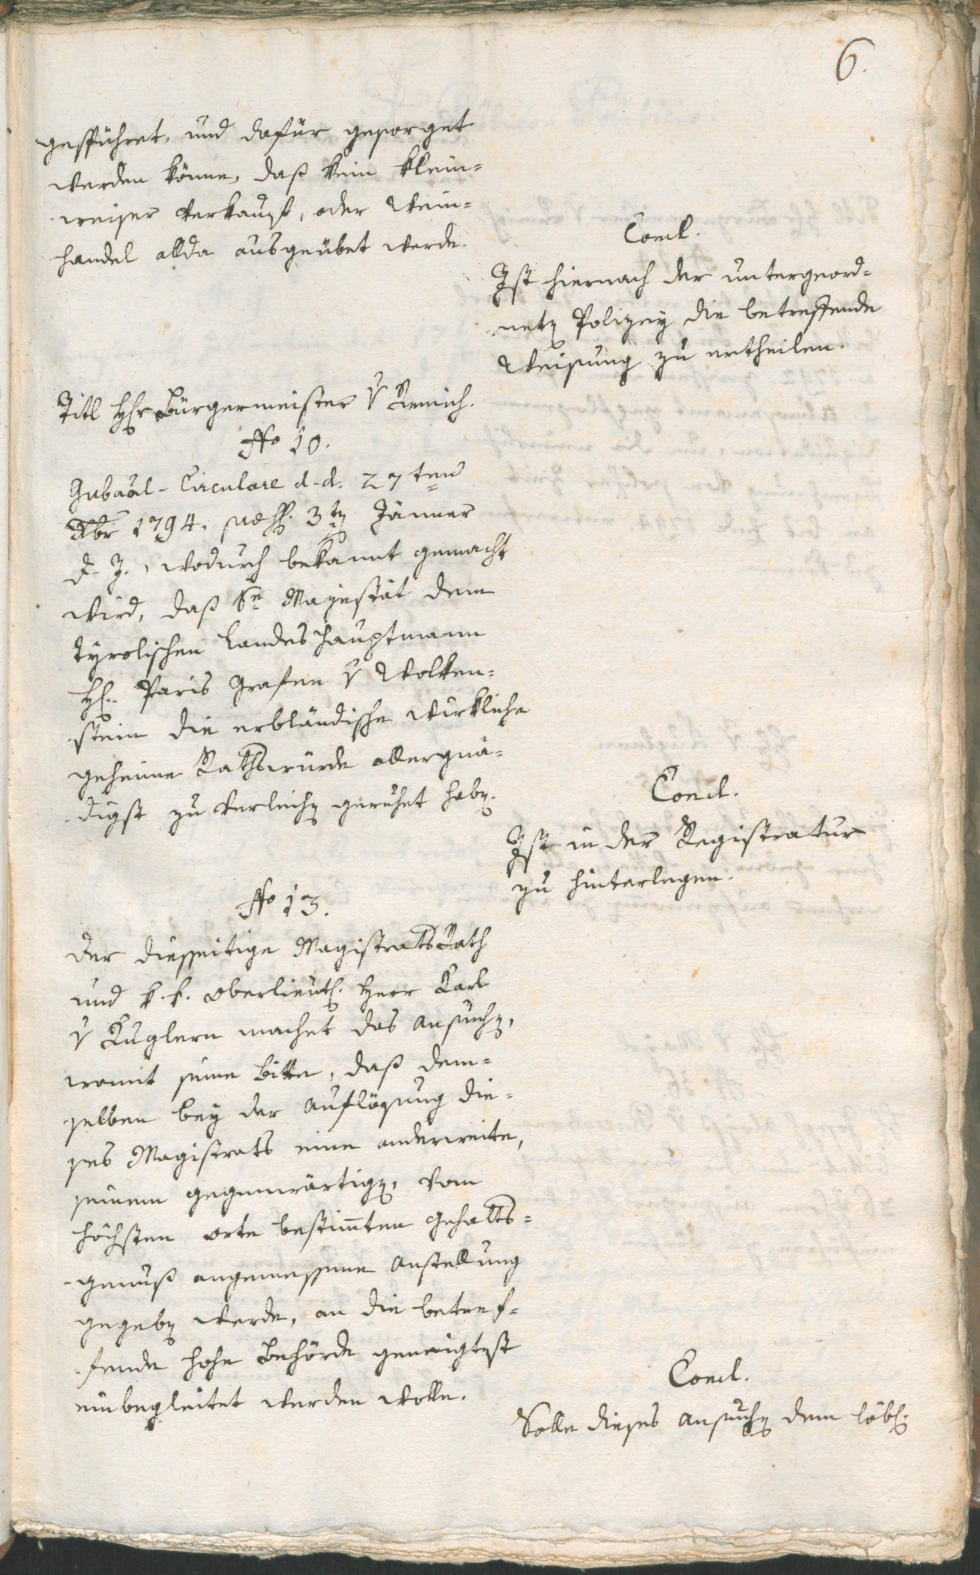 6.
geführet, und dafür gesorget
werden könne, daß kein klein-
weiser Verkauf, oder Wein-
handel allda ausgeübet werde.
Concl.
Ist hiernach der untergeord-
netẽ Polizey die betreffende
Weisung zu ertheilen.
Titl H. Bürgermeister v
No 10.
Gubãal-Circulare d.d. 27ten
Xbr 1794. 3tẽ Jänner
d. J., wodurch bekannt gemacht
wird, daß Se Mayestät dem
tyrolischen Landes Hauptmann
H. Paris Grafen v Wolken-
stein die erbländische würkliche
geheime Rathswürde allergnä-
digst zu verleihẽ geruhet habẽ.
Concl.
Ist in der Registratur
zu hinterlegen.
No 13.
Der diesseitige Magistrats Rath
und k. k. Oberlieut. Herr Karl
v Kuglern machet das Ansuchẽ,
womit seine Bitte, daß dem-
selben bey der Auflösung die-
ses Magistrats eine anderweite,
seinem gegenwärtigẽ, vom
höchsten Orte bestim̃ten Gehalts-
genuß angemessene Anstellung
gegebẽ werde, an die betref-
fende hohe Behörde geneigtest
einbegleitet werden wolle.
Concl.
Solle dieses Ansuchẽ dem löbl.